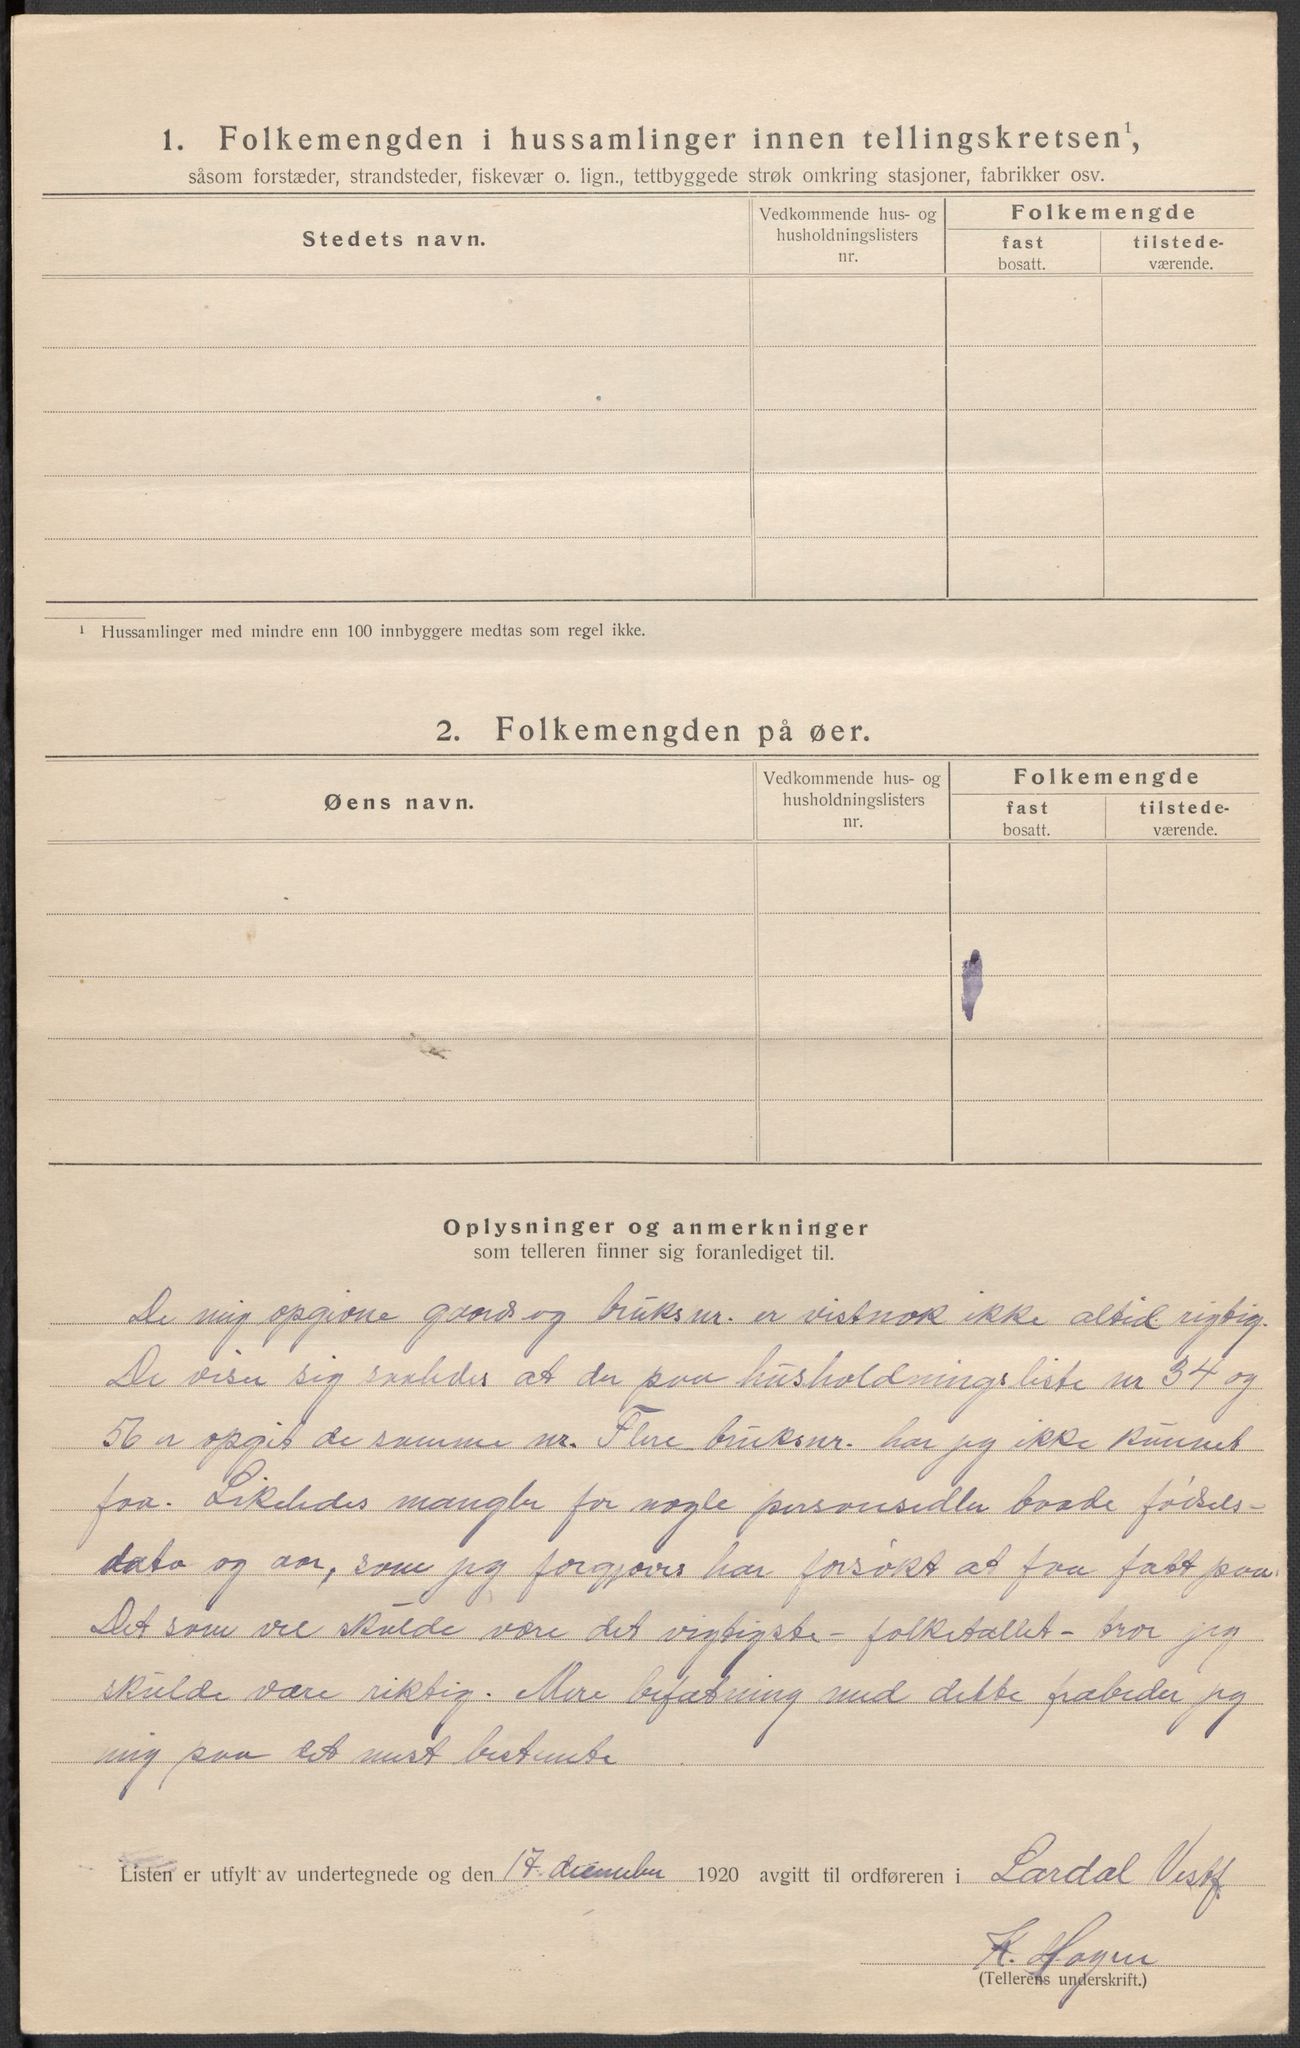 1. Folkemengden i hussamlinger innen tellingskretsen¹,
såsom forstæder, strandsteder, fiskevær o. lign., tettbyggede strøk omkring stasjoner, fabrikker osv.
Stedets navn.
Vedkommende hus- og
husholdningslisters
nr.
Folkemengde
fast
bosatt.
tilstede-
værende.
¹ Hussamlinger med mindre enn 100 innbyggere medtas som regel ikke.
2. Folkemengden på øer.
Øens navn.
Vedkommende hus- og
husholdningslisters
nr.
Folkemengde
fast
bosatt.
tilstede-
værende.
Oplysninger og anmerkninger
som telleren finner sig foranlediget til.
De mig opgivne gaards og bruksnr. er vistnok ikke altid rigtig.
De viser sig saaledes at der paa husholdningsliste nr 34 og
56 er opgit de samme nr. Flere bruksnr. har jeg ikke kunnet
faa. Likeledes mangler for nogle personsedler baade fødsels-
dato og aar, som jeg forgjæves har forsøkt at faa fatt paa.
Det som vel skulde være det vigtigste - folketallet - tror jeg
skulde være riktig. Mere befatning med dette frabeder jeg
mig paa det mest bestemte
Listen er utfylt av undertegnede og den 17 december 1920 avgitt til ordføreren i Lardal Vestf.
K. Hagen
(Tellerens underskrift.)